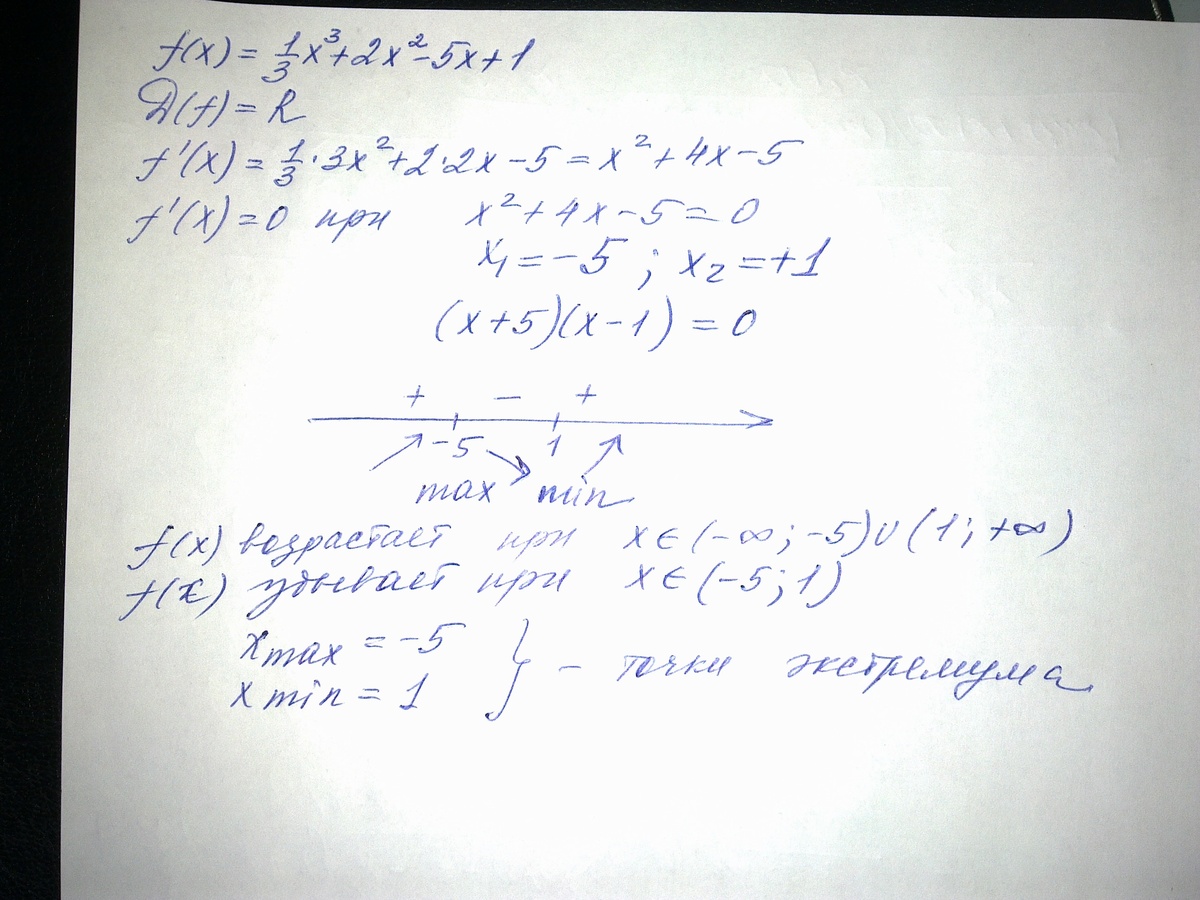 f(x) = 1/3 x³ + 2x² - 5x + 1
D(f) = R
f'(x) = 1/3 · 3x² + 2 · 2x - 5 = x² + 4x - 5
f'(x) = 0 при x² + 4x - 5 = 0
x₁ = -5 ; x₂ = +1
(x + 5)(x - 1) = 0
+ - +
-5 1
max min
f(x) возрастает при x ∈ (-∞; -5) ∪ (1; +∞)
f(x) убывает при x ∈ (-5; 1)
x max = -5
x min = 1 } - точки экстремума